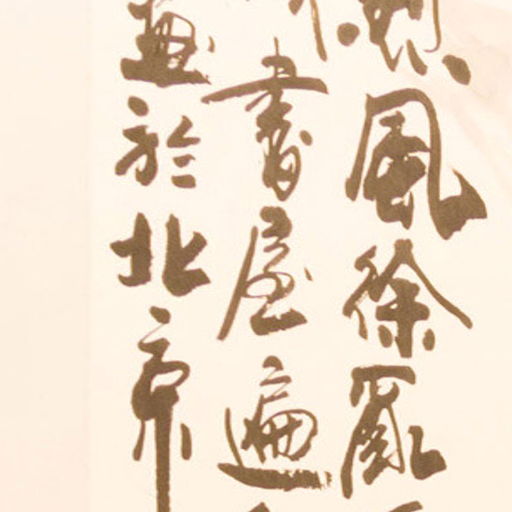 風徐
書屋遍
畫於北京